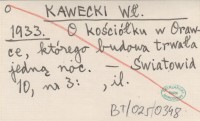 o KAWECKI Wł.
1933. O kościółku w Oraw-
ce, którego budowa trwała
jedną noc. — Światowid
10, nr 3: , il.
BT/025/0348